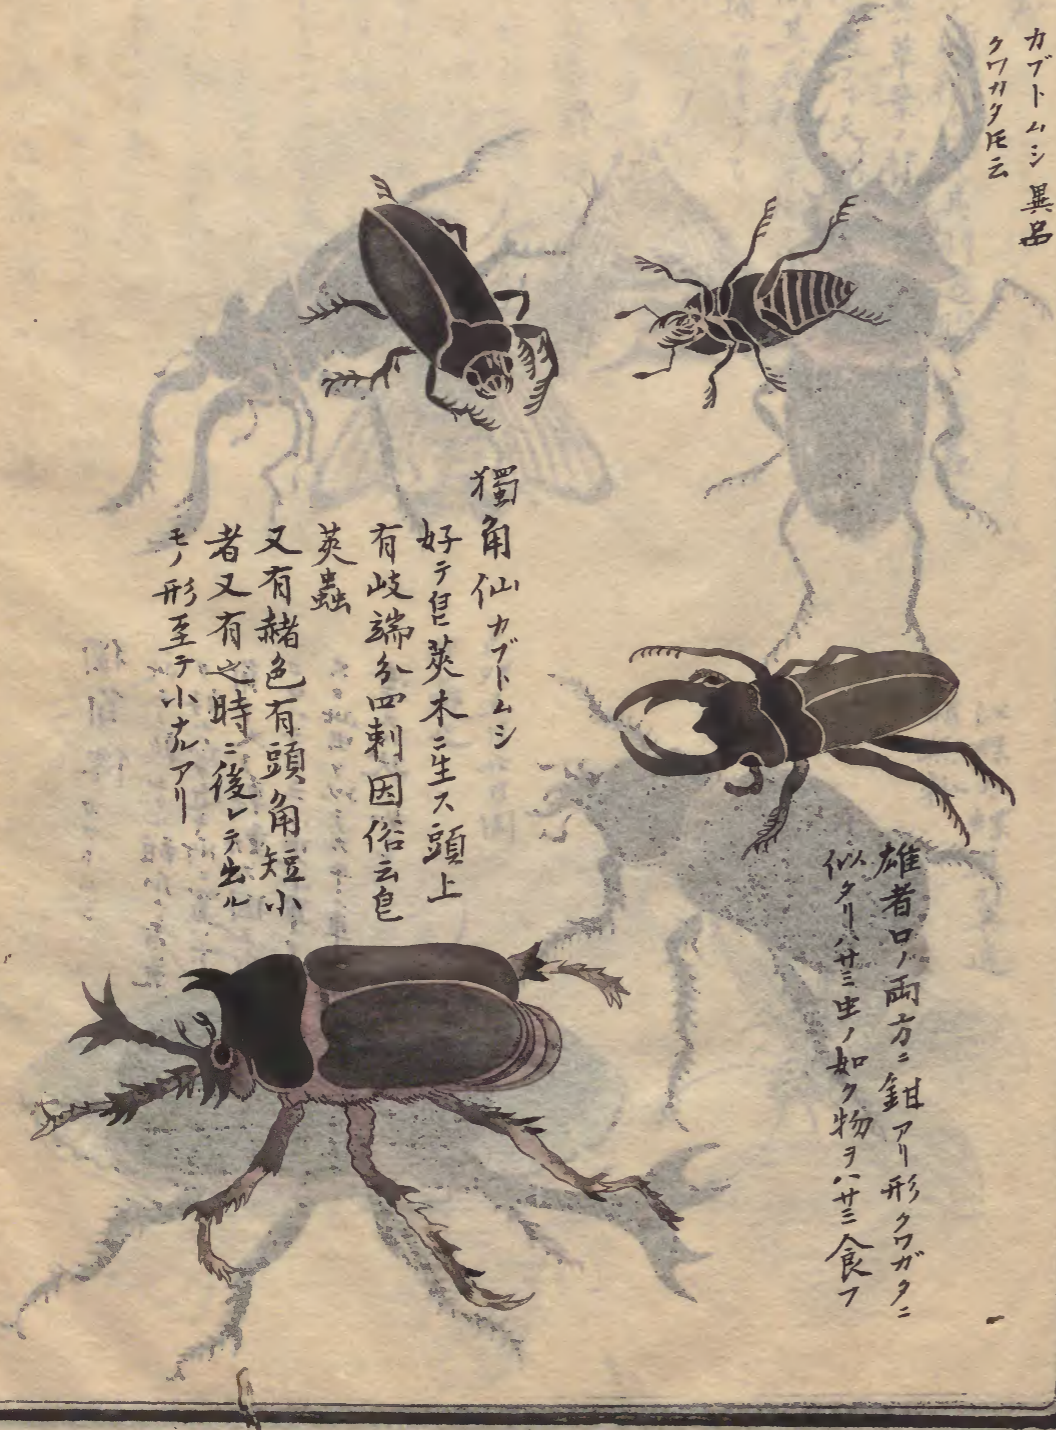 カブトムシ 異品
クワガタ圧云
雄者口ノ両方ニ鉗アリ形クワガタニ
似タリハサミ虫ノ如ク物ヲハサミ食フ
獨角仙カブトムシ
好テ皂莢木ニ生ス頭上
有岐端分四刺因俗云皂
莢蟲
又有赭色有頭角短小
者又有之時ニ後レテ出ル
モノ形至テ小ナルアリ